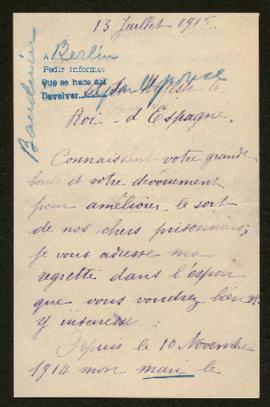 13 Juillet 1915.
Berlin
Pedir informes
Que se hace así
Devolver
Sa Majesté le
Roi d'Espagne,
Connaissant votre grande
bonté et votre dévouement
pour améliorer le sort
de nos chers prisonniers,
je vous adresse ma
regrette dans l'espoir
que vous voudrez bien
y intéresser.
Depuis le 10 Novembre
1914 mon mari le